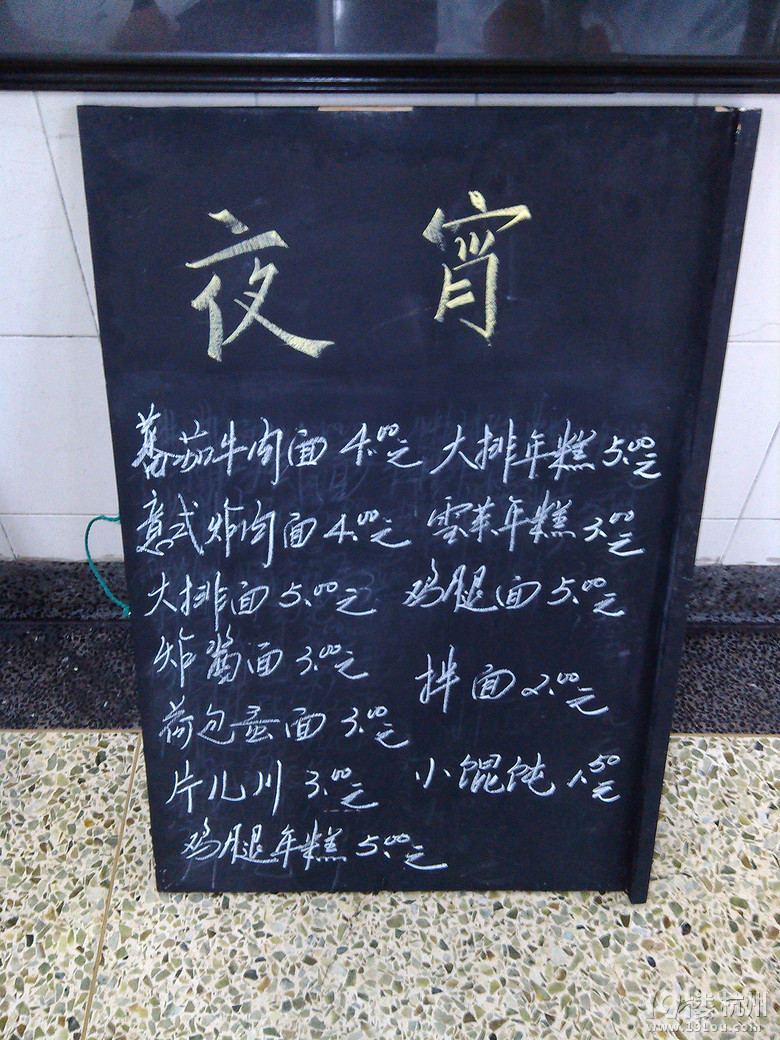 夜宵
蕃茄牛肉面 4.00元
意式炸肉面 4.00元
大排面 5.00元
炸酱面 3.00元
荷包蛋面 3.00元
片儿川 3.00元
鸡腿年糕 5.00元
大排年糕 5.00元
雪菜年糕 3.00元
鸡腿面 5.00元
拌面 2.00元
小馄饨 1.50元
19楼 杭州
www.19lou.com